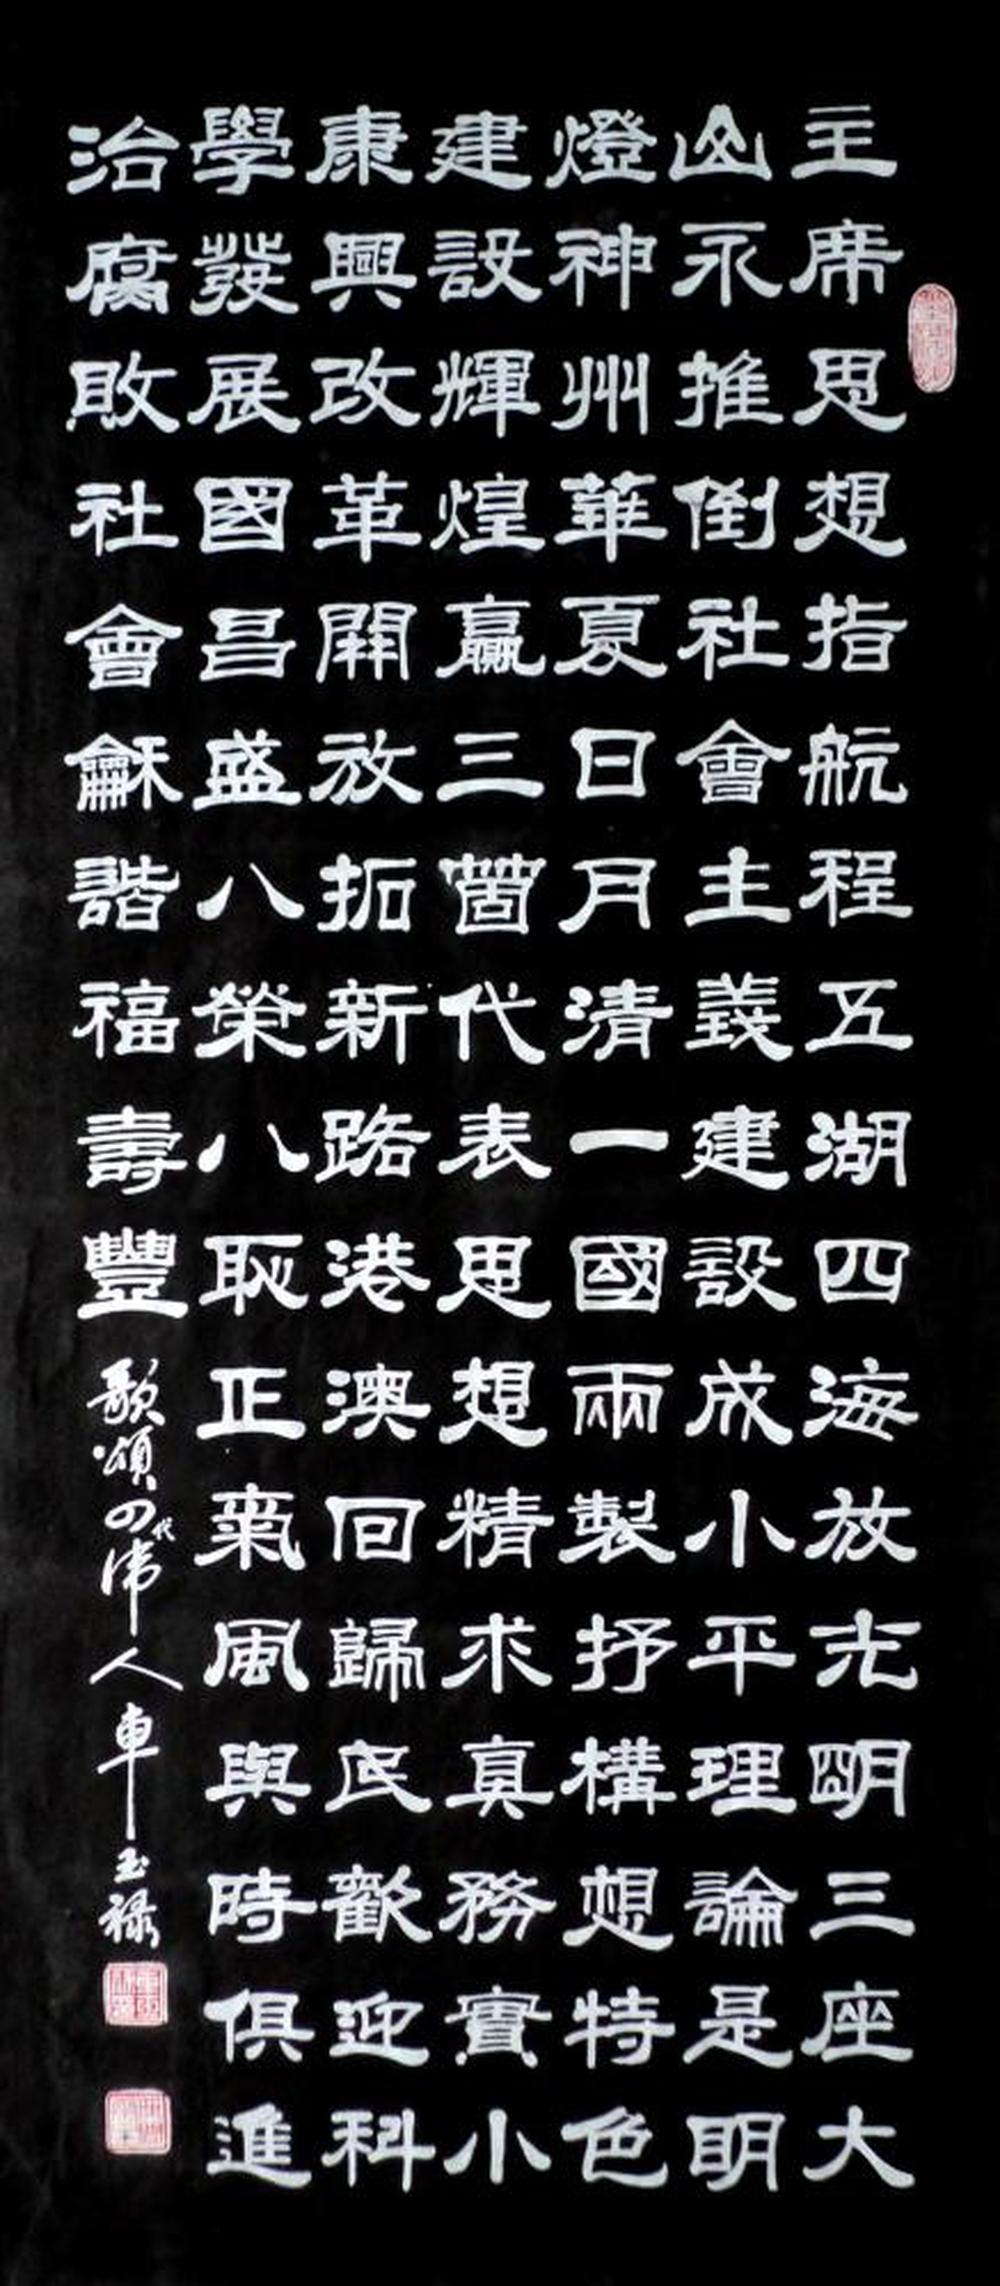 主席思想指航程五湖四海放光明三座大
山永推倒社會主義建設成小平理論是明
燈神州華夏日月清一國兩製抒構想特色
建設輝煌贏三個代表思想精求真務實小
康興改革開放拓新路港澳回歸民歡迎科
學發展國昌盛八榮八恥正氣風與時俱進
治腐敗社會龢諧福壽豐
歌頌四代偉人車玉祿